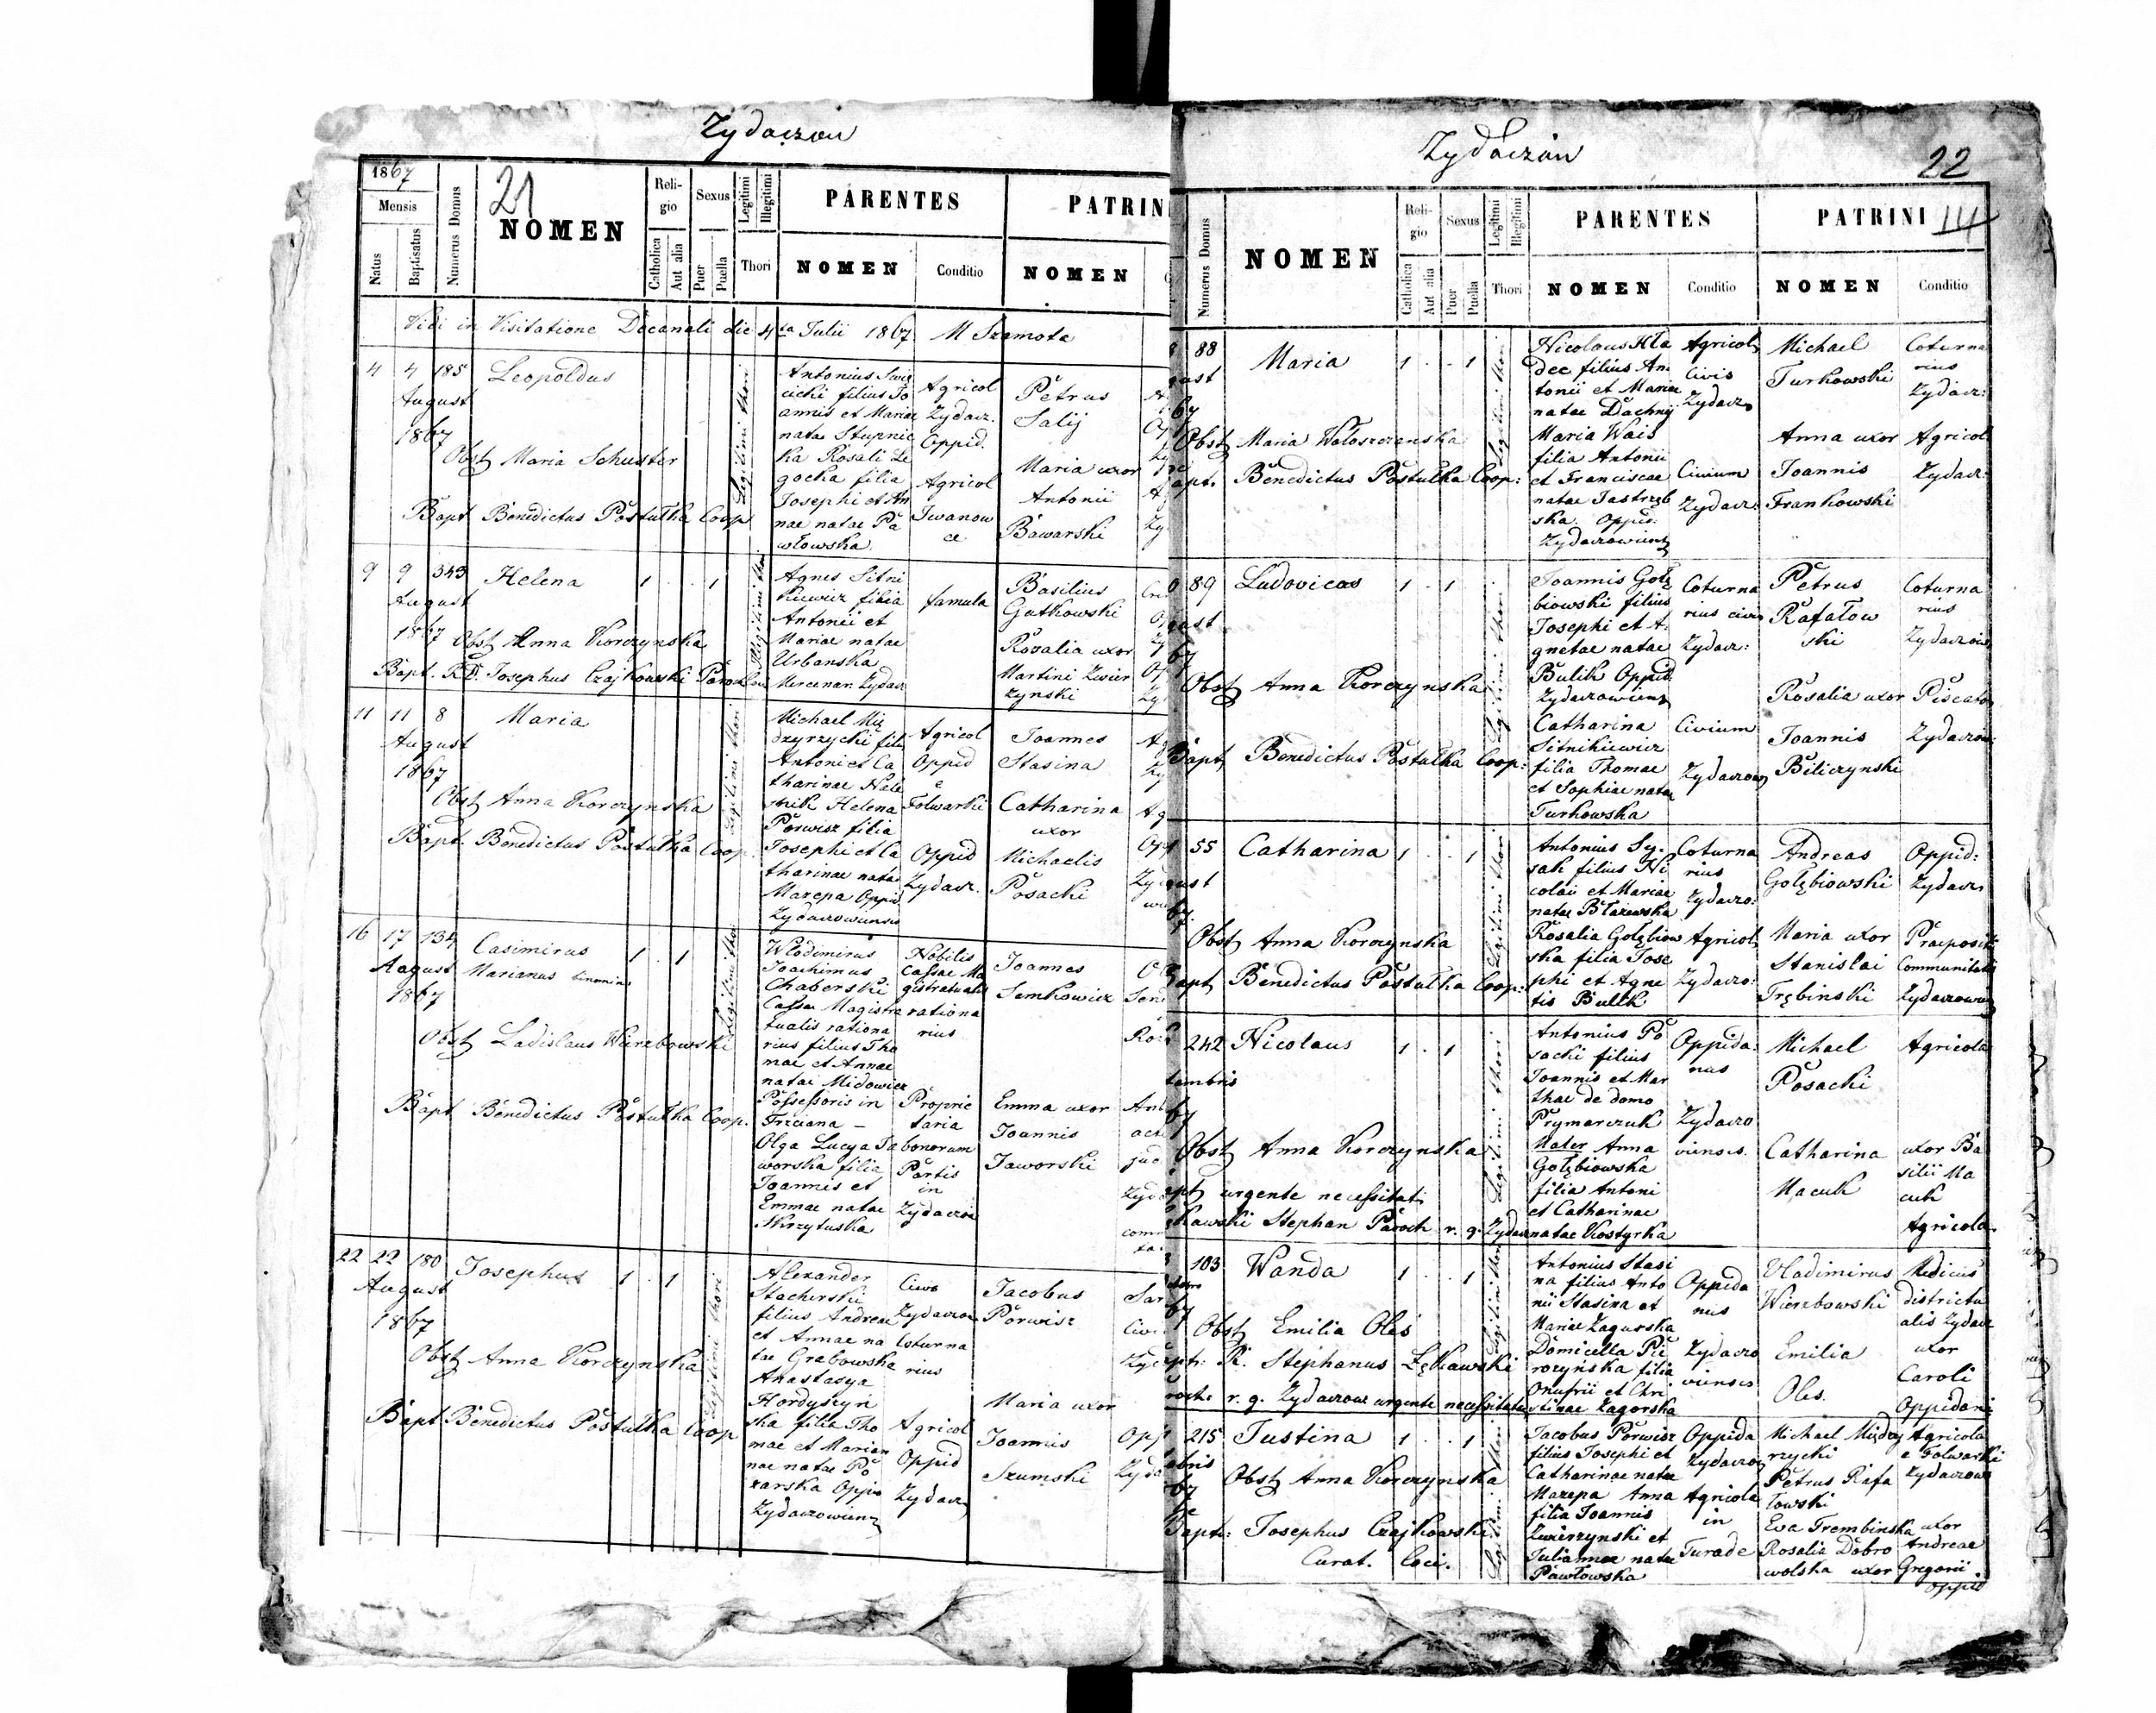 Zydaczow
1867
21
Mensis
Natus
Baptisatus
Numerus Domus
NOMEN
Religio
Catholica
Aut alia
Sexus
Puer
Puella
Legitimi
Illegitimi
Thori
PARENTES
NOMEN
Conditio
PATRIN
NOMEN
Vidi in Visitatione Decanali die 4ta Julii 1867 M Szamota
4 4 185 Leopoldus
August
1867
Obst Maria Schuster
Bapt Benedictus Postułka Coop
Legitimi thori
Antonius
cicki filius Jo
annis et Mariae
natae Stupnic
ka Rosali Le
gocka filia
Josephi et An
nae natae Pa
włowska
Agricol
Zydacz.
Oppid.
Agricol
Iwanow
ce
Petrus
Salij
Maria uxor
Antonii
Bawarski
9 9 343 Helena 1 . . 1
August
1867 Obst Anna Korczynska
Bapt. RD. Josephus Czajkowski Paroch
Illegitimi thori
Agnes Sitni
kiewicz filia
Antonii et
Mariae natae
Urbanska
Mercenar. Zydacz
famula
Basilius
Gutkowski
Rosalia uxor
Martini Zwier
zynski
11 11 8 Maria
August
1867
Obst Anna Korczynska
Bapt. Benedictus Postułka Coop
Legitimi thori
Michael Mię
dzyrzycki fili
Antoni et Ca
tharinae Hale
Helena
Porwisz filia
Josephi et Ca
tharinae natae
Mazepa Oppid
Zydaczowiensis
Agricol
Oppid
e
Folwarki
Oppid
Zydacz.
Joannes
Stasina
Catharina
uxor
Michaelis
Posacki
16 17 134 Casimirus 1 . 1
August Marianus binominis
1867
Obst Ladislaus Wierzbowski
Bapt. Benedictus Postułka Coop.
Legitimi thori
Włodimirus
Joachimus
Chaberski
Cassae Magistra
tualis rationa
rius filius Tho
mae et Annae
natae Midowicz
Possessoris in
Trzciana –
Olga Lucya Ja
worska filia
Joannis et
Emmae natae
Skrzytuska
Nobilis
Cassae Ma
gistratualis
rationa
rius
Proprie
taria
bonorum
Partis
in
Zydaczow
Joannes
Semkowicz
Emma uxor
Joannis
Jaworski
22 22 180 Josephus 1 . 1
August
1867
Obst Anna Korczynska
Bapt. Benedictus Postułka Coop
Legitimi thori
Alexander
Stacherski
filius Andreae
et Annae na
tae Grabowska
Anastasya
Hordyscyn
ska filia Tho
mae et Marian
nae natae Po
zarska Oppid
Zydaczowiens
Civis
Zydaczow
Coturna
rius
Agricol
Oppid
Zydacz
Jacobus
Porwisz
Maria uxor
Joannis
Szumski
Zydaczów
22
14
Numerus Domus
NOMEN
Religio
Catholica
Aut alia
Sexus
Puer
Puella
Legitimi
Illegitimi
Thori
PARENTES
NOMEN
Conditio
PATRINI
NOMEN
Conditio
88 Maria 1 . . 1
gust
67
Obst Maria Wołoszczanska
apt. Benedictus Postułka Coop:
Nicolaus Hła
dec filius An
tonii et Mariae
natae Dachnij
Maria Wais
filia Antonii
et Franciscae
natae Jastrzęb
ska. Oppid:
Zydaczowiens
Agricol
Civis
Zydacz
Civium
Zydacz:
Michael
Turkowski
Anna uxor
Joannis
Frankowski
Coturna
rius
Zydacz:
Agricol
Zydacz:
89 Ludovicus 1 . 1
gust
67
Obst Anna Korczynska
Bapt Benedictus Postułka Coop:
Joannis Gołę
biowski filius
Josephi et A.
gnetae natae
Bulik Oppid.
Zydaczowiens
Catharina
Sitnikiewicz
filia Thomae
et Sophiae natae
Turkowska
Coturna
rius civis
Zydacz:
Civium
Zydaczow
Petrus
Rafałow
ski
Rosalia uxor
Joannis
Biliczynski
Coturna
rius
Zydaczow
Piscator
Zydaczow:
55 Catharina 1 . . 1
gust
67.
Obst Anna Korczynska
Bapt Benedictus Postułka Coop:
Antonius Sy-
sak filius Ni
colai et Mariae
natae Błazewska
Rosalia Gołębiow
ska filia Jose
phi et Agne
tis Bulik
Coturna
rius
Zydaczo:
Agricol
Zydaczo:
Andreas
Gołębiowski
Maria uxor
Stanislai
Trębinski
Oppid:
Zydacz
Praeposit
Communitatis
Zydaczowien
242 Nicolaus 1 . 1
tembris
67
Obst Anna Korczynska
apt urgente necessitati
kawski Stephan Paroch r. g. Zydacz
Antonius Po
sacki filius
Joannis et Mar
thae de domo
Prymarczuk
Mater Anna
Gołębiowska
filia Antoni
et Catharinae
natae Kostyrka
Oppida
nus
Zydaczo
viensis.
Michael
Posacki
Catharina
Macuk
Agricola
uxor Ba
silii Ma
cuk
Agricola.
103 Wanda 1 . . 1
67
Obst Emilia Oleś
apt: R. Stephanus Łękawski
roch r. g. Zydaczow urgente necessitate
Antonius Stasi
na filius Anto
nii Stasina et
Mariae Zagorska
Domicella Pie
rozynska filia
Onufrii et Chri
stinae Zagorska
Oppida
nus
Zydaczo
viensis
Vladimirus
Wierzbowski
Emilia
Oles.
Medicus
districtu
alis Zydacz
uxor
Caroli
Oppidani
215 Justina 1 . . 1
bris
67
Obst Anna Korczynska
Bapt: Josephus Czajkowski
Curat. Loci.
Jacobus Porwisz
filius Josephi et
Catharinae natae
Mazepa Anna
filia Joannis
Zwierzynski et
Juliannae natae
Pawłowska
Oppida
Zydaczow
Agricola
in
Turade
Michael Między
rzycki
Petrus Rafa
łowski
Eva Trembinska
Rosalia Dobro
wolska uxor
Agricola
e Folwarki
Zydaczow
uxor
Andreae
Gregorii
Oppid